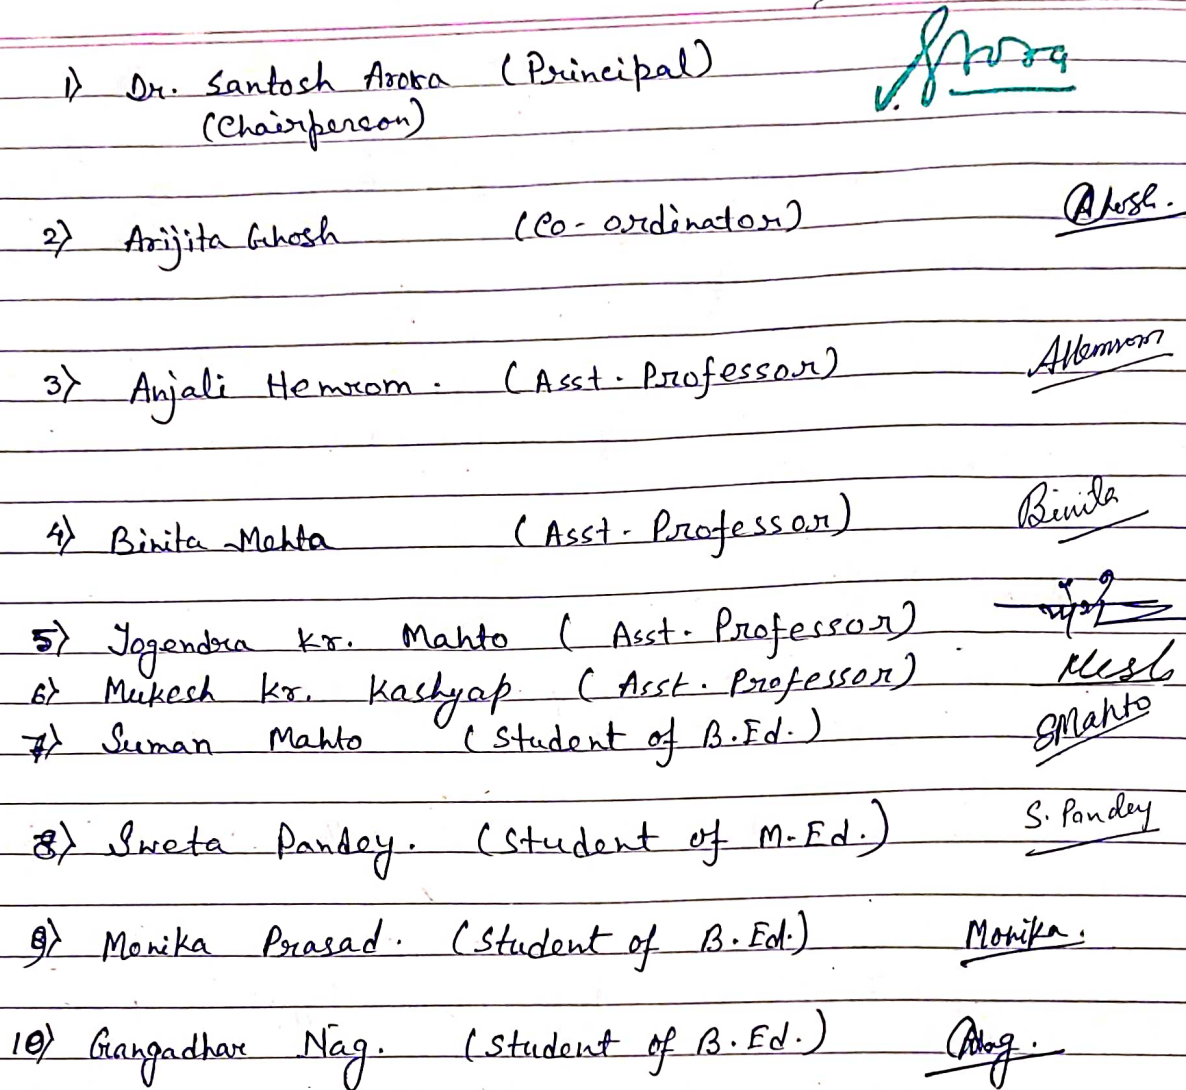 1) Dr. Santosh Arora (Principal) Arora
(Chairperson)
2) Arijita Ghosh (Co-ordinator) Ghosh.
3) Anjali Hemrom. (Asst. Professor) AHemrom
4) Binita Mehta (Asst. Professor) Binita
5) Yogendra Kr. Mahto (Asst. Professor)
6) Mukesh Kr. Kashyap (Asst. Professor)
7) Suman Mahto (Student of B.Ed.) SMahto
8) Sweta Pandey. (Student of M.Ed.) S. Pandey
9) Monika Prasad. (Student of B.Ed.) Monika.
10) Gangadhar Nag. (Student of B.Ed.) GNag.